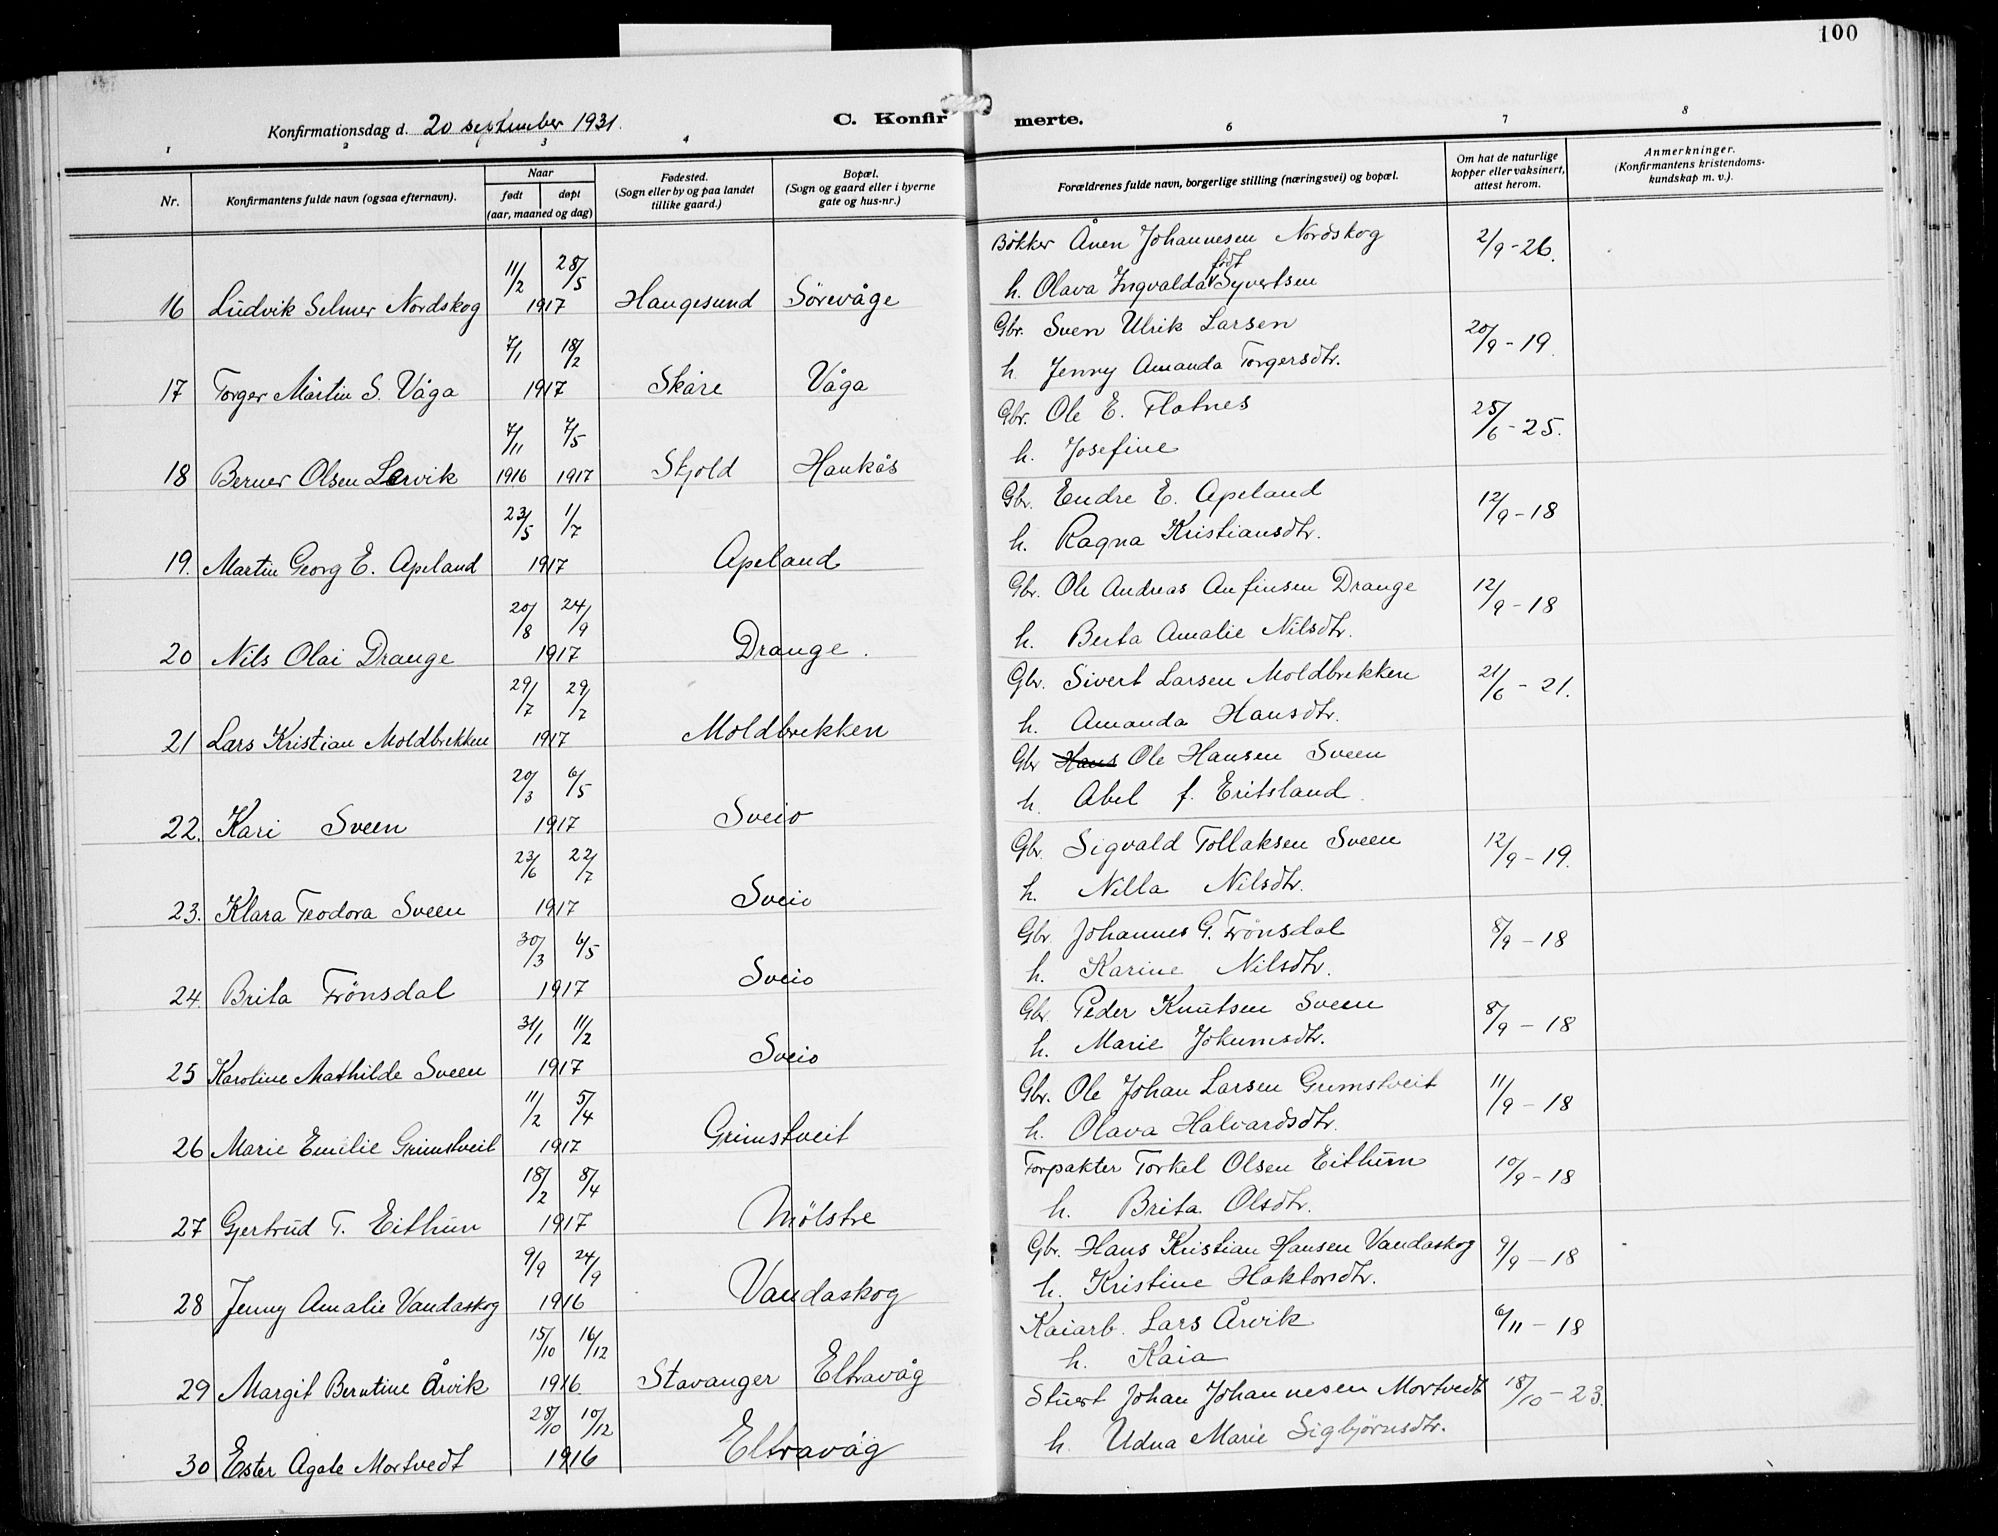 100
Konfirmationsdag d. 20 september 1931.
C. Konfirmerte.
1 2 3 4 6 7 8
Nr.
Konfirmantens fulde navn (ogsaa efternavn).
Naar
født døpt
(aar, maaned og dag)
Fødested.
(Sogn eller by og paa landet
tillike gaard.)
Bopæl.
(Sogn og gaard eller i byerne
gate og hus-nr.)
Forældrenes fulde navn, borgerlige stilling (næringsvei) og bopæl.
Om hat de naturlige
kopper eller vaksinert,
attest herom.
Anmerkninger.
(Konfirmantens kristendoms-
kundskap m. v.).
11/2 28/5 Bøkker Ånen Johannesen Nordskog 2/9-26.
16 Ludvik Selmer Nordskog 1917 Haugesund Sørevåge h. Olava Ingvalda født Syvertsen
7/1 18/2 Gbr. Sven Ulrik Larsen 20/9-19.
17 Torger Martin S. Våga 1917 Skåre Våga h. Jenny Amanda Torgersdtr.
7/11 7/5 Gbr. Ole E. Flatnes 25/6-25.
18 Berner Olsen Lervik 1916 1917 Skjold Haukås h. Josefine
23/5 1/7 Gbr. Endre E. Apeland 12/9-18
19. Martin Georg E. Apeland 1917 Apeland h. Ragna Kristiansdtr.
20/8 24/9 Gbr. Ole Andreas Anfinsen Drange 12/9-18
20 Nils Olai Drange 1917 Drange. h. Berta Amalie Nilsdtr.
29/7 29/7 Gbr. Sivert Larsen Moldbrekken 21/6-21.
21 Lars Kristian Moldbrekken 1917 Moldbrekken h. Amanda Hansdtr.
20/3 6/5 Gbr Hans Ole Hansen Sveen
22. Kari Sveen 1917 Sveio h. Abel f. Eritsland
23/6 22/7 Gbr. Sigvald Tollaksen Sveen 12/9-19.
23. Klara Teodora Sveen 1917 Sveio h. Nilla Nilsdtr.
30/3 6/5 Gbr. Johannes G. Trönsdal 8/9-18
24. Brita Trönsdal 1917 Sveio h. Karine Nilsdtr.
31/1 11/2 Gbr. Peder Knutsen Sveen 8/9-18
25 Karoline Mathilde Sveen 1917 Sveio h. Marie Jokumsdtr.
11/2 5/4 Gbr. Ole Johan Larsen Grimstveit 11/9-18
26 Marie Emilie Grimstveit 1917 Grimstveit h. Olava Halvardsdtr.
18/2 8/4 Forpakter Torkel Olsen Eithun 10/9-18
27 Gjertrud T. Eithun 1917 Mölstre h. Brita Olsdtr.
9/9 24/9 Gbr. Hans Kristian Hansen Vandaskog 9/9-18
28 Jenny Amalie Vandaskog 1916 Vandaskog h. Kristine Haktorsdtr.
15/10 16/12 Kaiarb. Lars Årvik 6/11-18
29 Margit Berntine Årvik 1916 Stavanger Eltravåg h. Kaia
28/10 10/12 Stuert Johan Johannesen Mortvedt 18/10-23.
30 Ester Agate Mortvedt 1916 Eltravåg h. Udna Marie Sigbjörnsdtr.